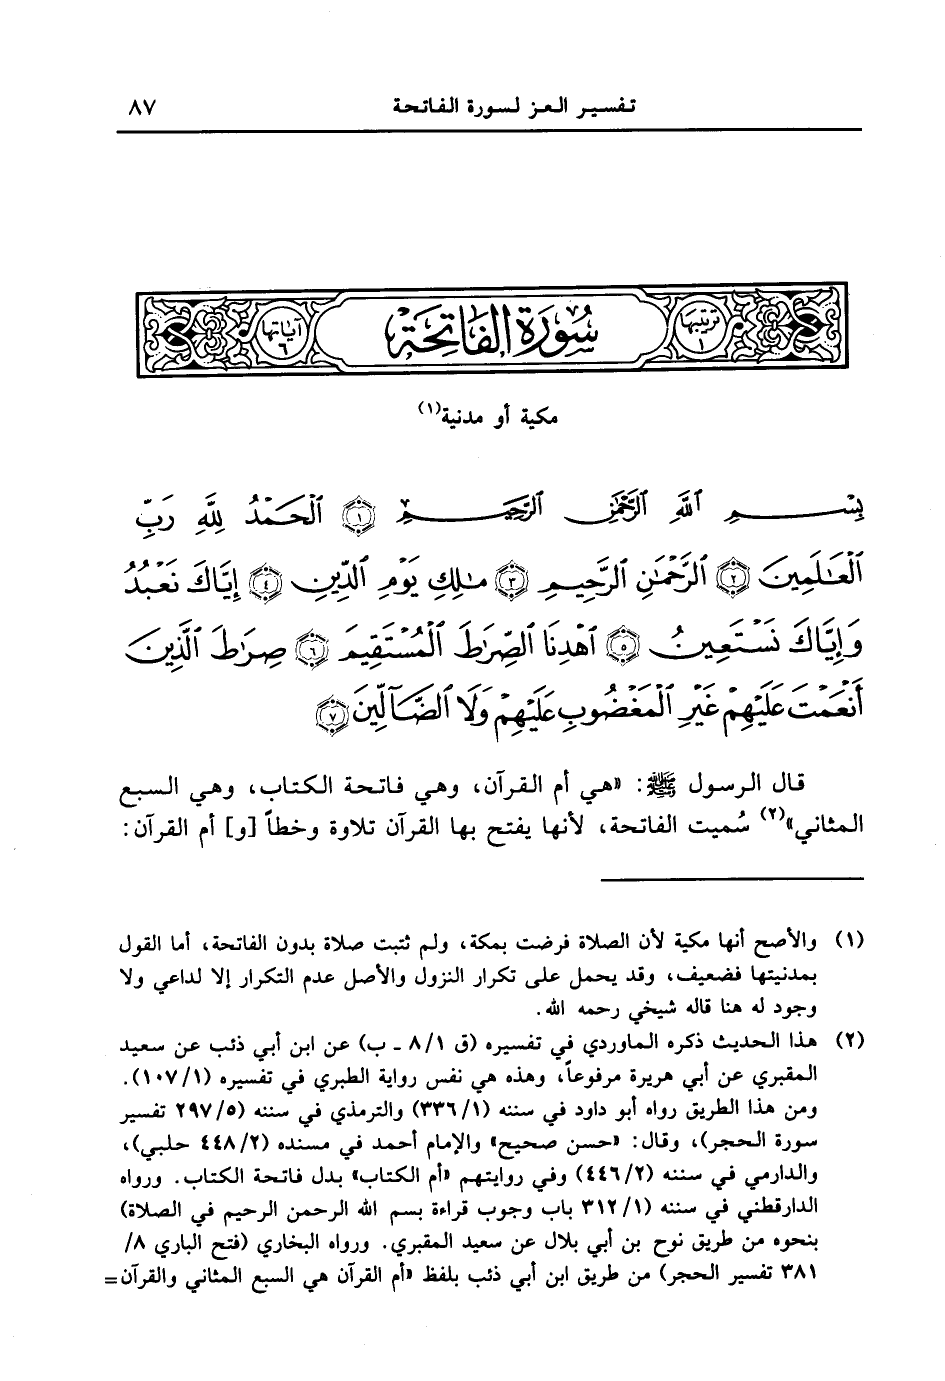 تفسير العز لسورة الفاتحة ٨٧
ترتيبها ١ سُورَةُ الفَاتِحَةِ آياتها ٦
مكية أو مدنية(١)
بِسْمِ ٱللَّهِ ٱلرَّحْمَٰنِ ٱلرَّحِيمِ ١ ٱلْحَمْدُ لِلَّهِ رَبِّ
ٱلْعَٰلَمِينَ ٢ ٱلرَّحْمَٰنِ ٱلرَّحِيمِ ٣ مَٰلِكِ يَوْمِ ٱلدِّينِ ٤ إِيَّاكَ نَعْبُدُ
وَإِيَّاكَ نَسْتَعِينُ ٥ ٱهْدِنَا ٱلصِّرَٰطَ ٱلْمُسْتَقِيمَ ٦ صِرَٰطَ ٱلَّذِينَ
أَنْعَمْتَ عَلَيْهِمْ غَيْرِ ٱلْمَغْضُوبِ عَلَيْهِمْ وَلَا ٱلضَّآلِّينَ ٧
قال الرسول ﷺ: «هي أم القرآن، وهي فاتحة الكتاب، وهي السبع
المثاني»(٢) سُميت الفاتحة، لأنها يفتح بها القرآن تلاوة وخطاً [و] أم القرآن:
(١) والأصح أنها مكية لأن الصلاة فرضت بمكة، ولم تثبت صلاة بدون الفاتحة، أما القول
بمدنيتها فضعيف، وقد يحمل على تكرار النزول والأصل عدم التكرار إلا لداعي ولا
وجود له هنا قاله شيخي رحمه الله.
(٢) هذا الحديث ذكره الماوردي في تفسيره (ق ٨/١ ـ ب) عن ابن أبي ذئب عن سعيد
المقبري عن أبي هريرة مرفوعاً، وهذه هي نفس رواية الطبري في تفسيره (١٠٧/١).
ومن هذا الطريق رواه أبو داود في سننه (٣٣٦/١) والترمذي في سننه (٢٩٧/٥ تفسير
سورة الحجر)، وقال: «حسن صحيح» والإمام أحمد في مسنده (٤٤٨/٢ حلبي)،
والدارمي في سننه (٤٤٦/٢) وفي روايتهم «أم الكتاب» بدل فاتحة الكتاب. ورواه
الدارقطني في سننه (٣١٢/١ باب وجوب قراءة بسم الله الرحمن الرحيم في الصلاة)
بنحوه من طريق نوح بن أبي بلال عن سعيد المقبري. ورواه البخاري (فتح الباري ٨/
٣٨١ تفسير الحجر) من طريق ابن أبي ذئب بلفظ «أم القرآن هي السبع المثاني والقرآن=